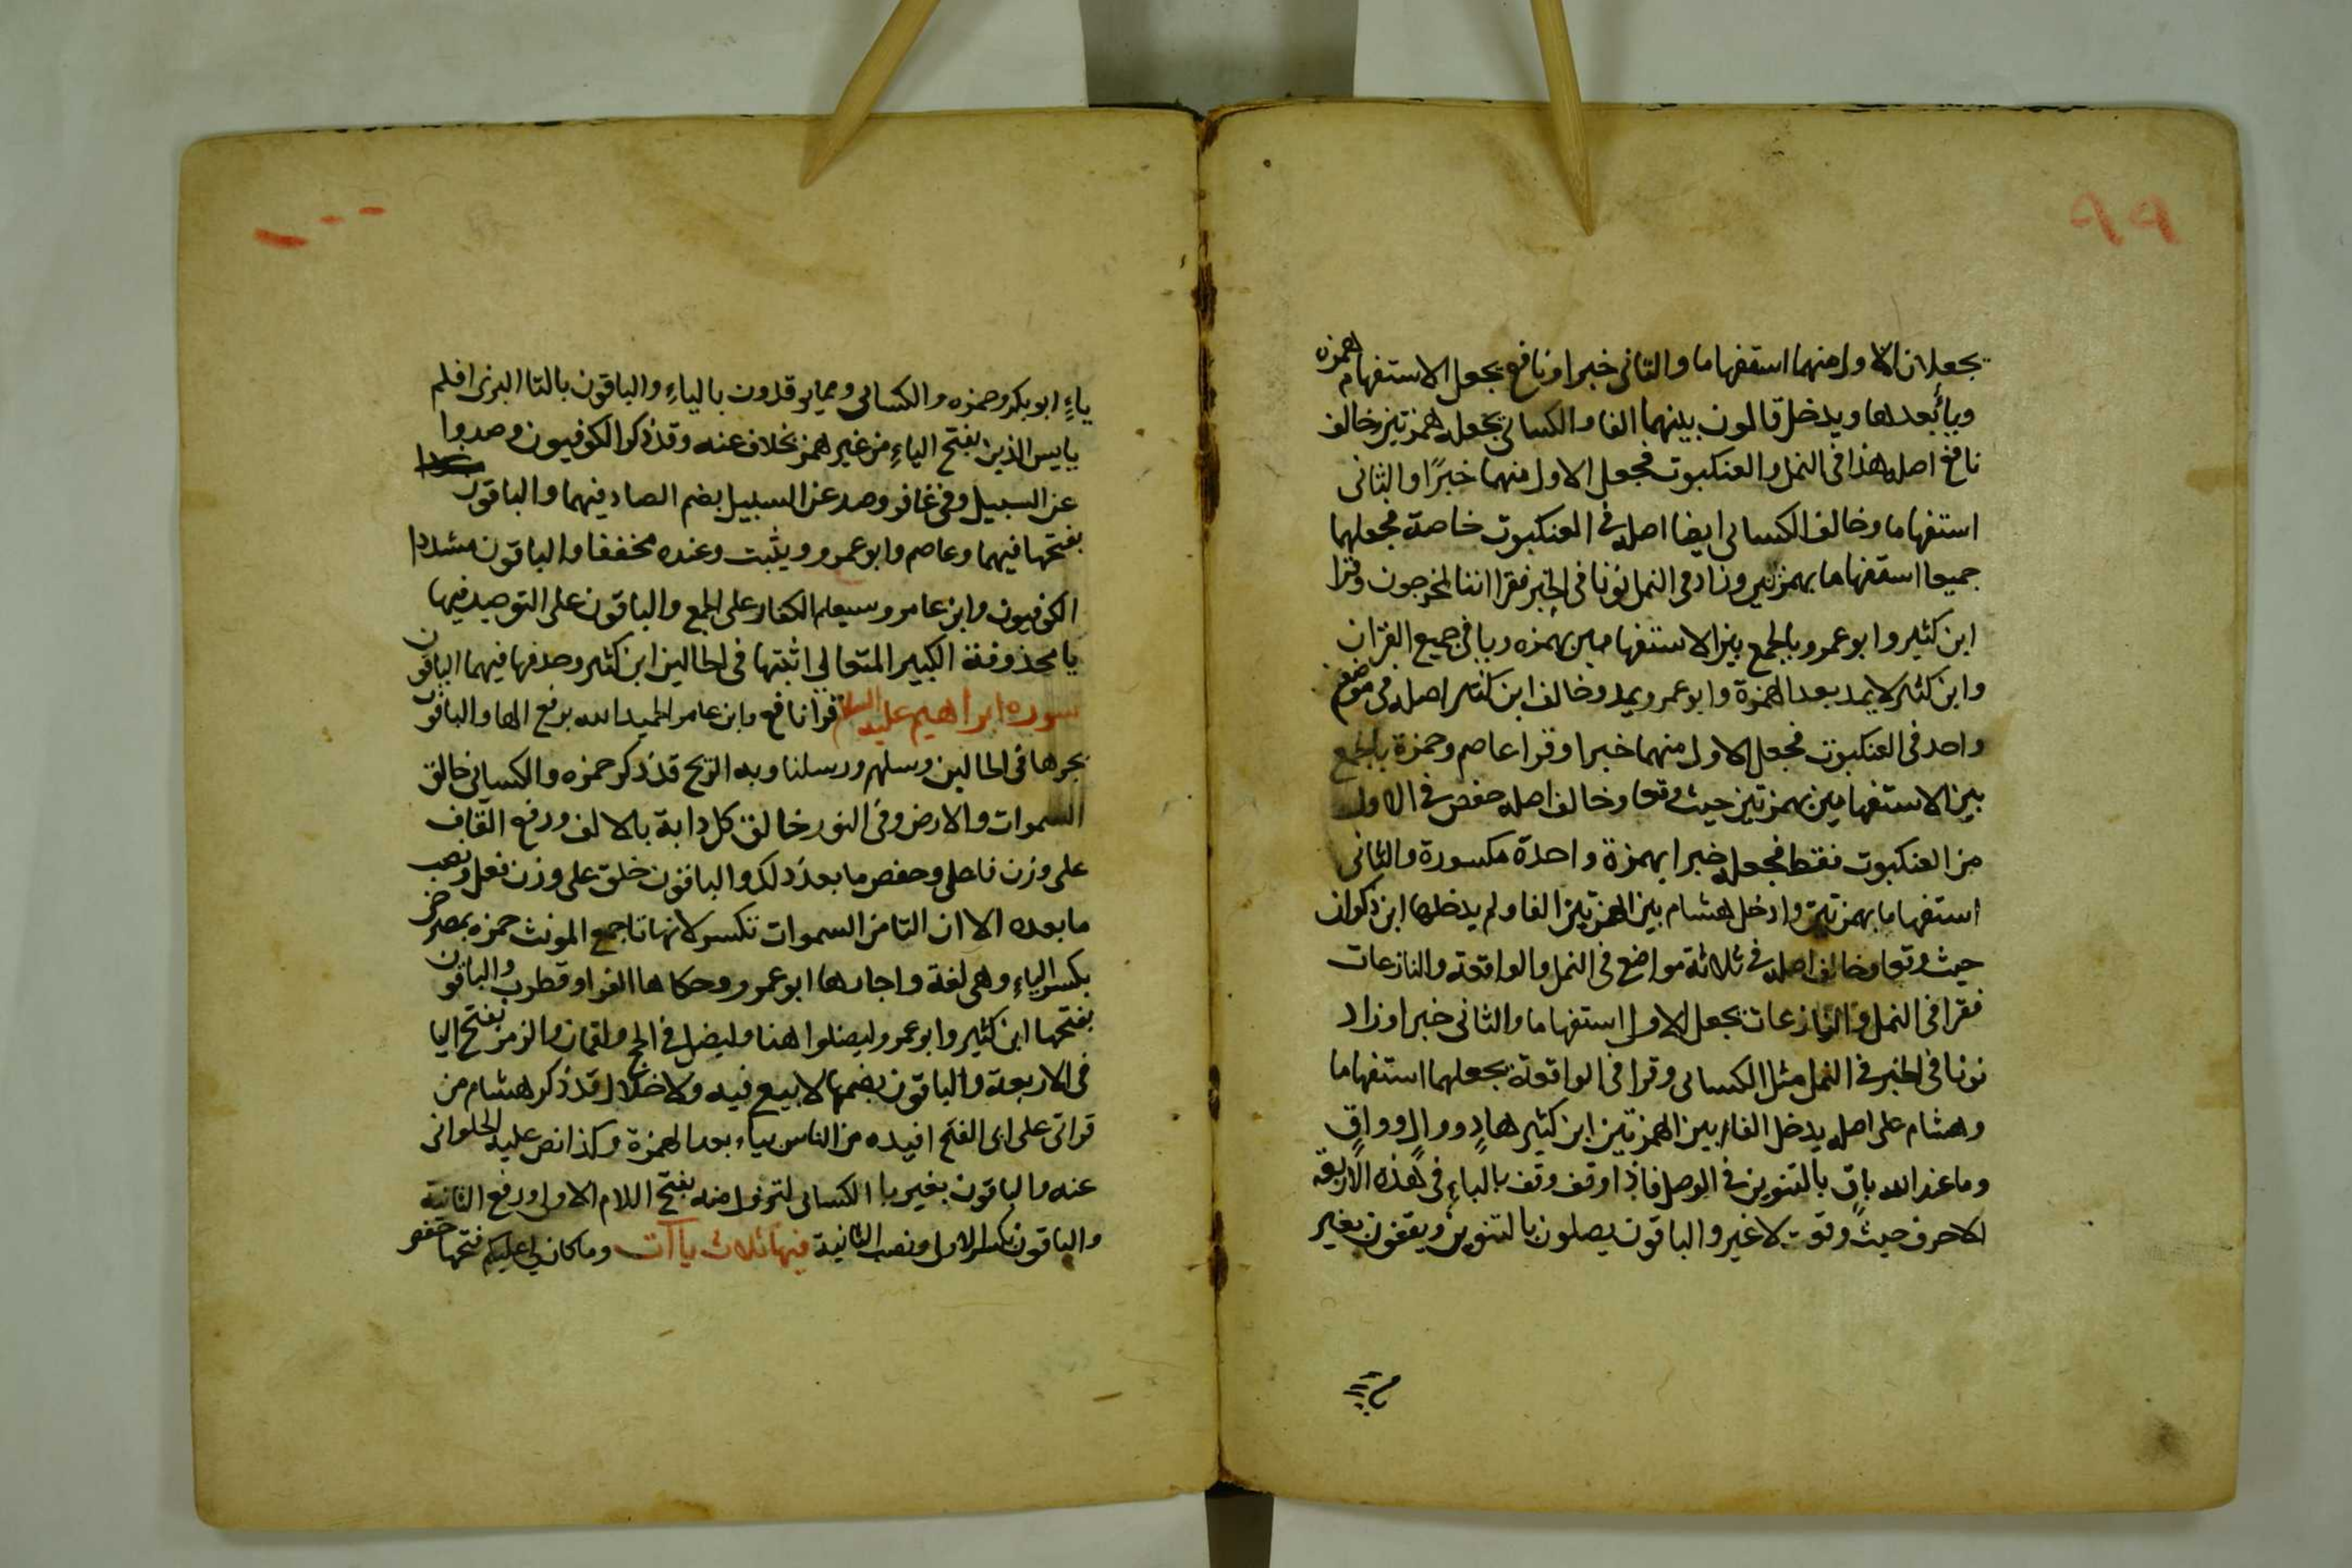 ٩٩
يجعلان الاول منهما استفهاما والثانى خبرا ونافع يجعل الاستفهام همزه
وياً بعدها ويدخل قالون بينهما الفا والكسائى يجعله همزتين وخالف
نافع اصله هذا فى النمل والعنكبوت فجعل الاول منهما خبرًا والثانى
استفهاما وخالف الكسائى ايضا اصله فى العنكبوت خاصة فجعلهما
جميعا استفهاما بهمزتين وزاد فى النمل نونا فى الخبر فقرا اننا لمخرجون وقرا
ابن كثير وابو عمرو بالجمع بين الاستفهامين بهمزه ويا فى جميع القرآن
وابن كثير لا يمد بعد الهمزة وابو عمرو يمد وخالف ابن كثير اصله فى موضع
واحد فى العنكبوت فجعل الاول منهما خبرا وقرا عاصم وحمزة بالجمع
بين الاستفهامين بهمزتين حيث وقعا وخالف اصله حفص فى الاول
من العنكبوت فقط فجعله خبرا بهمزة واحدة مكسورة والثانى
استفهاما بهمزتين وادخل هشام بين الهمزتين الفا ولم يدخلها ابن ذكوان
حيث وقعا وخالف اصله فى ثلاثة مواضع فى النمل والواقعة والنازعات
فقرا فى النمل والنازعات بجعل الاول استفهاما والثانى خبرا وزاد
نونا فى الخبر فى النمل مثل الكسائى وقرا فى الواقعة بجعلهما استفهاما
وهشام على اصله يدخل الفا بين الهمزتين ابن كثير هادٍ ووالٍ وواقٍ
وما عند الله باقٍ بالتنوين فى الوصل فاذا وقف وقف بالياء فى هذه الاربعة
الاحرف حيث وقعت لا غير والباقون يصلون بالتنوين ويقفون بغير
ياءٍ ابو بكر وحمزه والكسائى ومما يوقدون بالياءِ والباقون بالتا البزى افلم
يايس الذين بفتح الياءِ من غير همز بخلاف عنه وقد ذكر الكوفيون وصدوا
عن السبيل وفى غافر وصد عن السبيل بضم الصاد فيهما والباقون
بفتحها فيهما وعاصم وابو عمرو ويثبت وعنده مخففا والباقون مشددا
الكوفيون وابن عامر وسيعلم الكفار على الجمع والباقون على التوحيد فيها
يا محذوفة الكبير المتعالى اثبتها فى الحالين ابن كثير وحذفها فيهما الباقون
سوره ابراهيم عليه السلام قرا نافع وابن عامر الحميد الله برفع الها والباقون
بجرها فى الحالين وسلهم ورسلنا وبه الريح قد ذكر حمزه والكسائى خالق
السموات والارض وفى النور خالق كل دابة بالالف ورفع القاف
على وزن فاعل وخفض ما بعد ذلك والباقون خلق على وزن فعل ونصب
ما بعده الا ان التا من السموات تكسر لانها تا جمع المونث حمزه بمصرخى
بكسر الياءِ وهى لغة واجازها ابو عمرو وحكاها الفرا وقطرب والباقون
بفتحها ابن كثير وابو عمرو ليضلوا هنا وليضل فى الحج ولقمان والزمر بفتح اليا
فى الاربعة والباقون بضمها لا بيع فيه ولا خلال قد ذكر هشام من
قراتى على ابى الفتح افيده من الناس بياء بعد الهمزة وكذا نص عليه الحلوانى
عنه والباقون بغير يا الكسائى لتزول منه بفتح اللام الاولى ورفع الثانية
والباقون بكسر الاول ونصب الثانية فيها ثلاث ياآت وما كان لى عليكم فتحها حفص